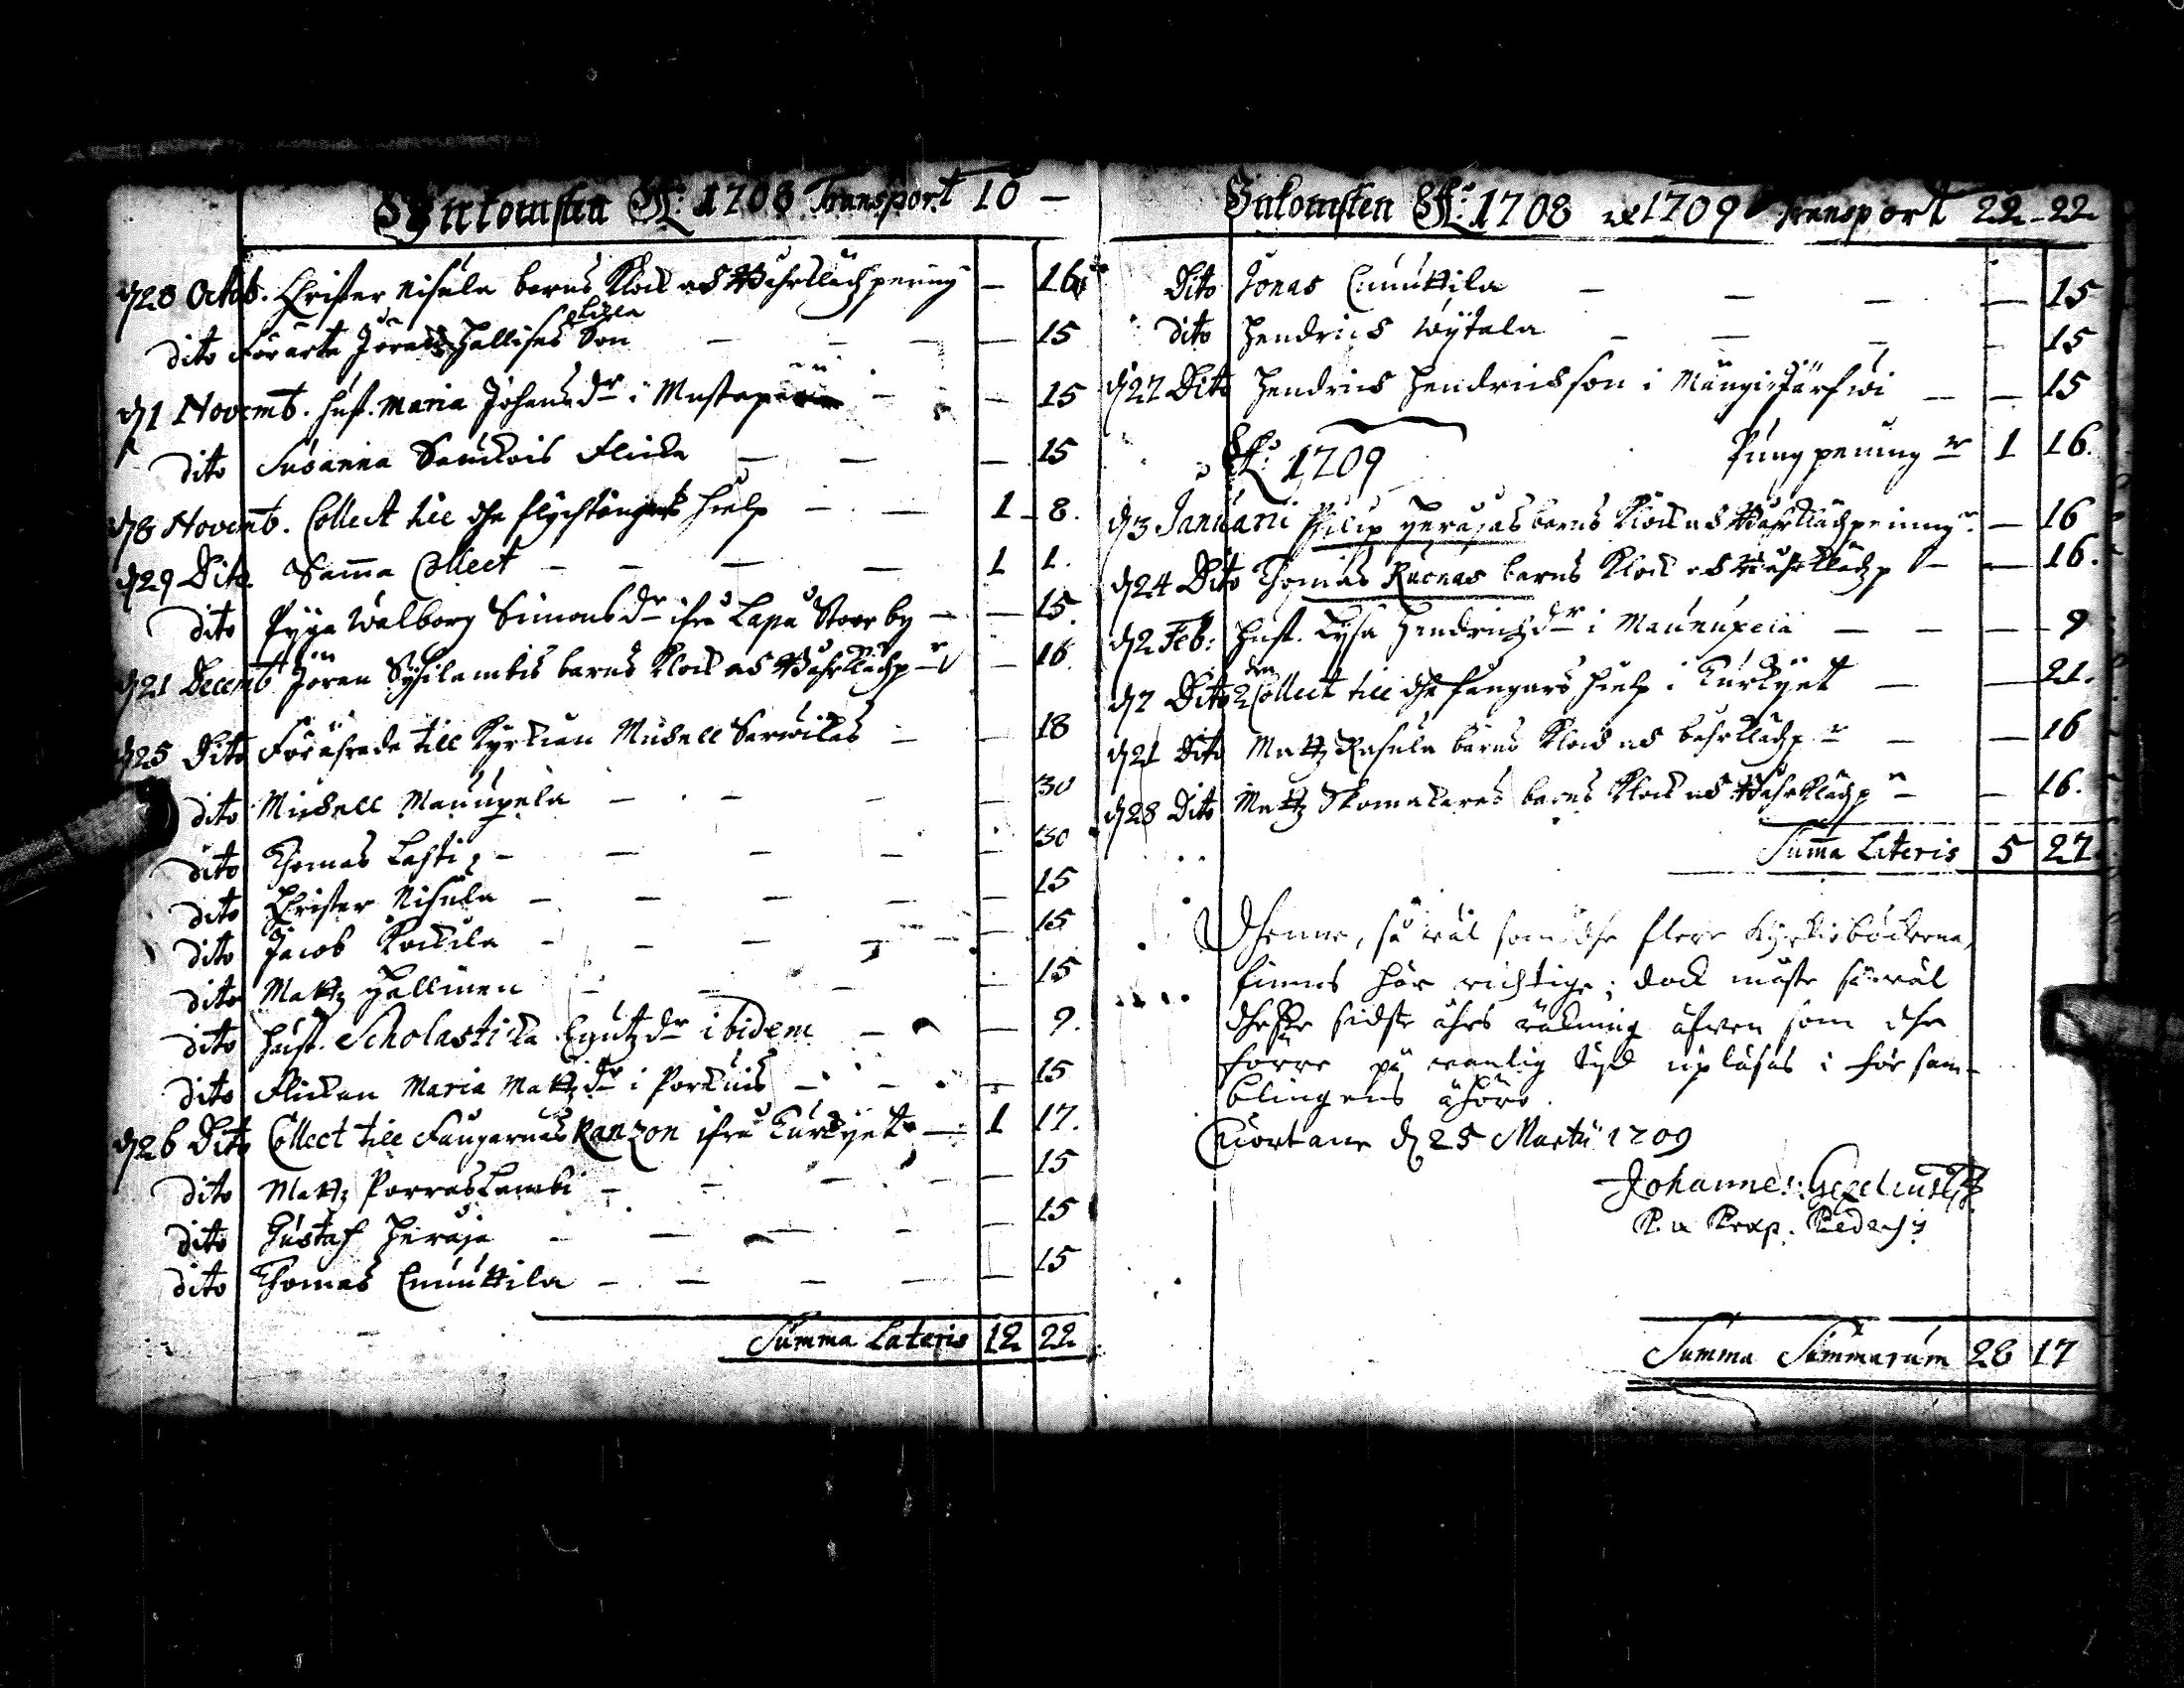 Inkomsten A:o 1708 Transport 10 —
d 28 Octob. Christer Nisula barns Klock och Bahrklädz penning — 16
salige
dito Förärte Jörans Hallises Son — 15
d 1 Novemb. hust. Maria Johansdr i Mustapää — 15
dito Susanna Sauckois Flicka — 15
d 8 Novemb. Collect till dhe flychtingars hielp — 1 8.
d 29 Dito Samma Collect — 1 1.
dito Pyga Walborg Simonsdr ifrå Lapa Stoor by — 15.
d 21 Decemb Jören Sysilambis barns Klock och Bahrklädz p — 16.
d 25 Dito Förährade till Kyrckian Michell Sarwikas — 18
dito Michell Mauupela — 30
dito Thomas Lahti — 30
dito Christer Nisula — 15
dito Jacob Kackila — 15
dito Mattz Hallinen — 15
dito hust. Scholastica Knutzdr ibidem — 9.
dito Flickan Maria Mattzdr i Porckuis — 15
d 26 Dito Collect till Fångarnas Ranzon ifrå Kurkyet — 1 17.
dito Mattz Porraslambi — 15
dito Gustaf Heraja — 15
dito Thomas Cnuuttila — 15
Summa Lateris 12 22
Inkomsten A:o 1708 et 1709 Transport 22 — 22
Dito Jonas Cnuuttila — 15
dito Hendrich Wytala — 15
d 27 Dito Hendrich Hendrichson i Mängiejärfwi — 15
A:o 1709 Pungpenning 1 16.
d 3 Januarii Philip Herajas barns Klock och Bahrklädz penning — 16
d 24 Dito Thomas Ruonas barns Klock och Bahrklädz p — 16.
d 2 Feb: hust. Lysa Hendrichzdr i Mauunupeia — 9
d 7 Dito 2 dra Collect till dhe fångars hielp i Kurkyet — 21.
d 21 Dito Mattz Rasula barns Klock och bahrklädz p — 16
d 28 Dito Mattz Skomakares barns Klock och Bahrklädz p — 16.
Summa Lateris 5 27
Dhenne, så wäl som dhe flere Kyrkioböckerna,
finnes här richtige; dock måste såwäl
dhesse sidste åhrs räkning äfwen som dhe
förre på wanlig tijd upläses i försam-
blingens åhöro.
Cuortane d 25 Martii 1709
Johannes Gezelius
Summa Summarum 28 17